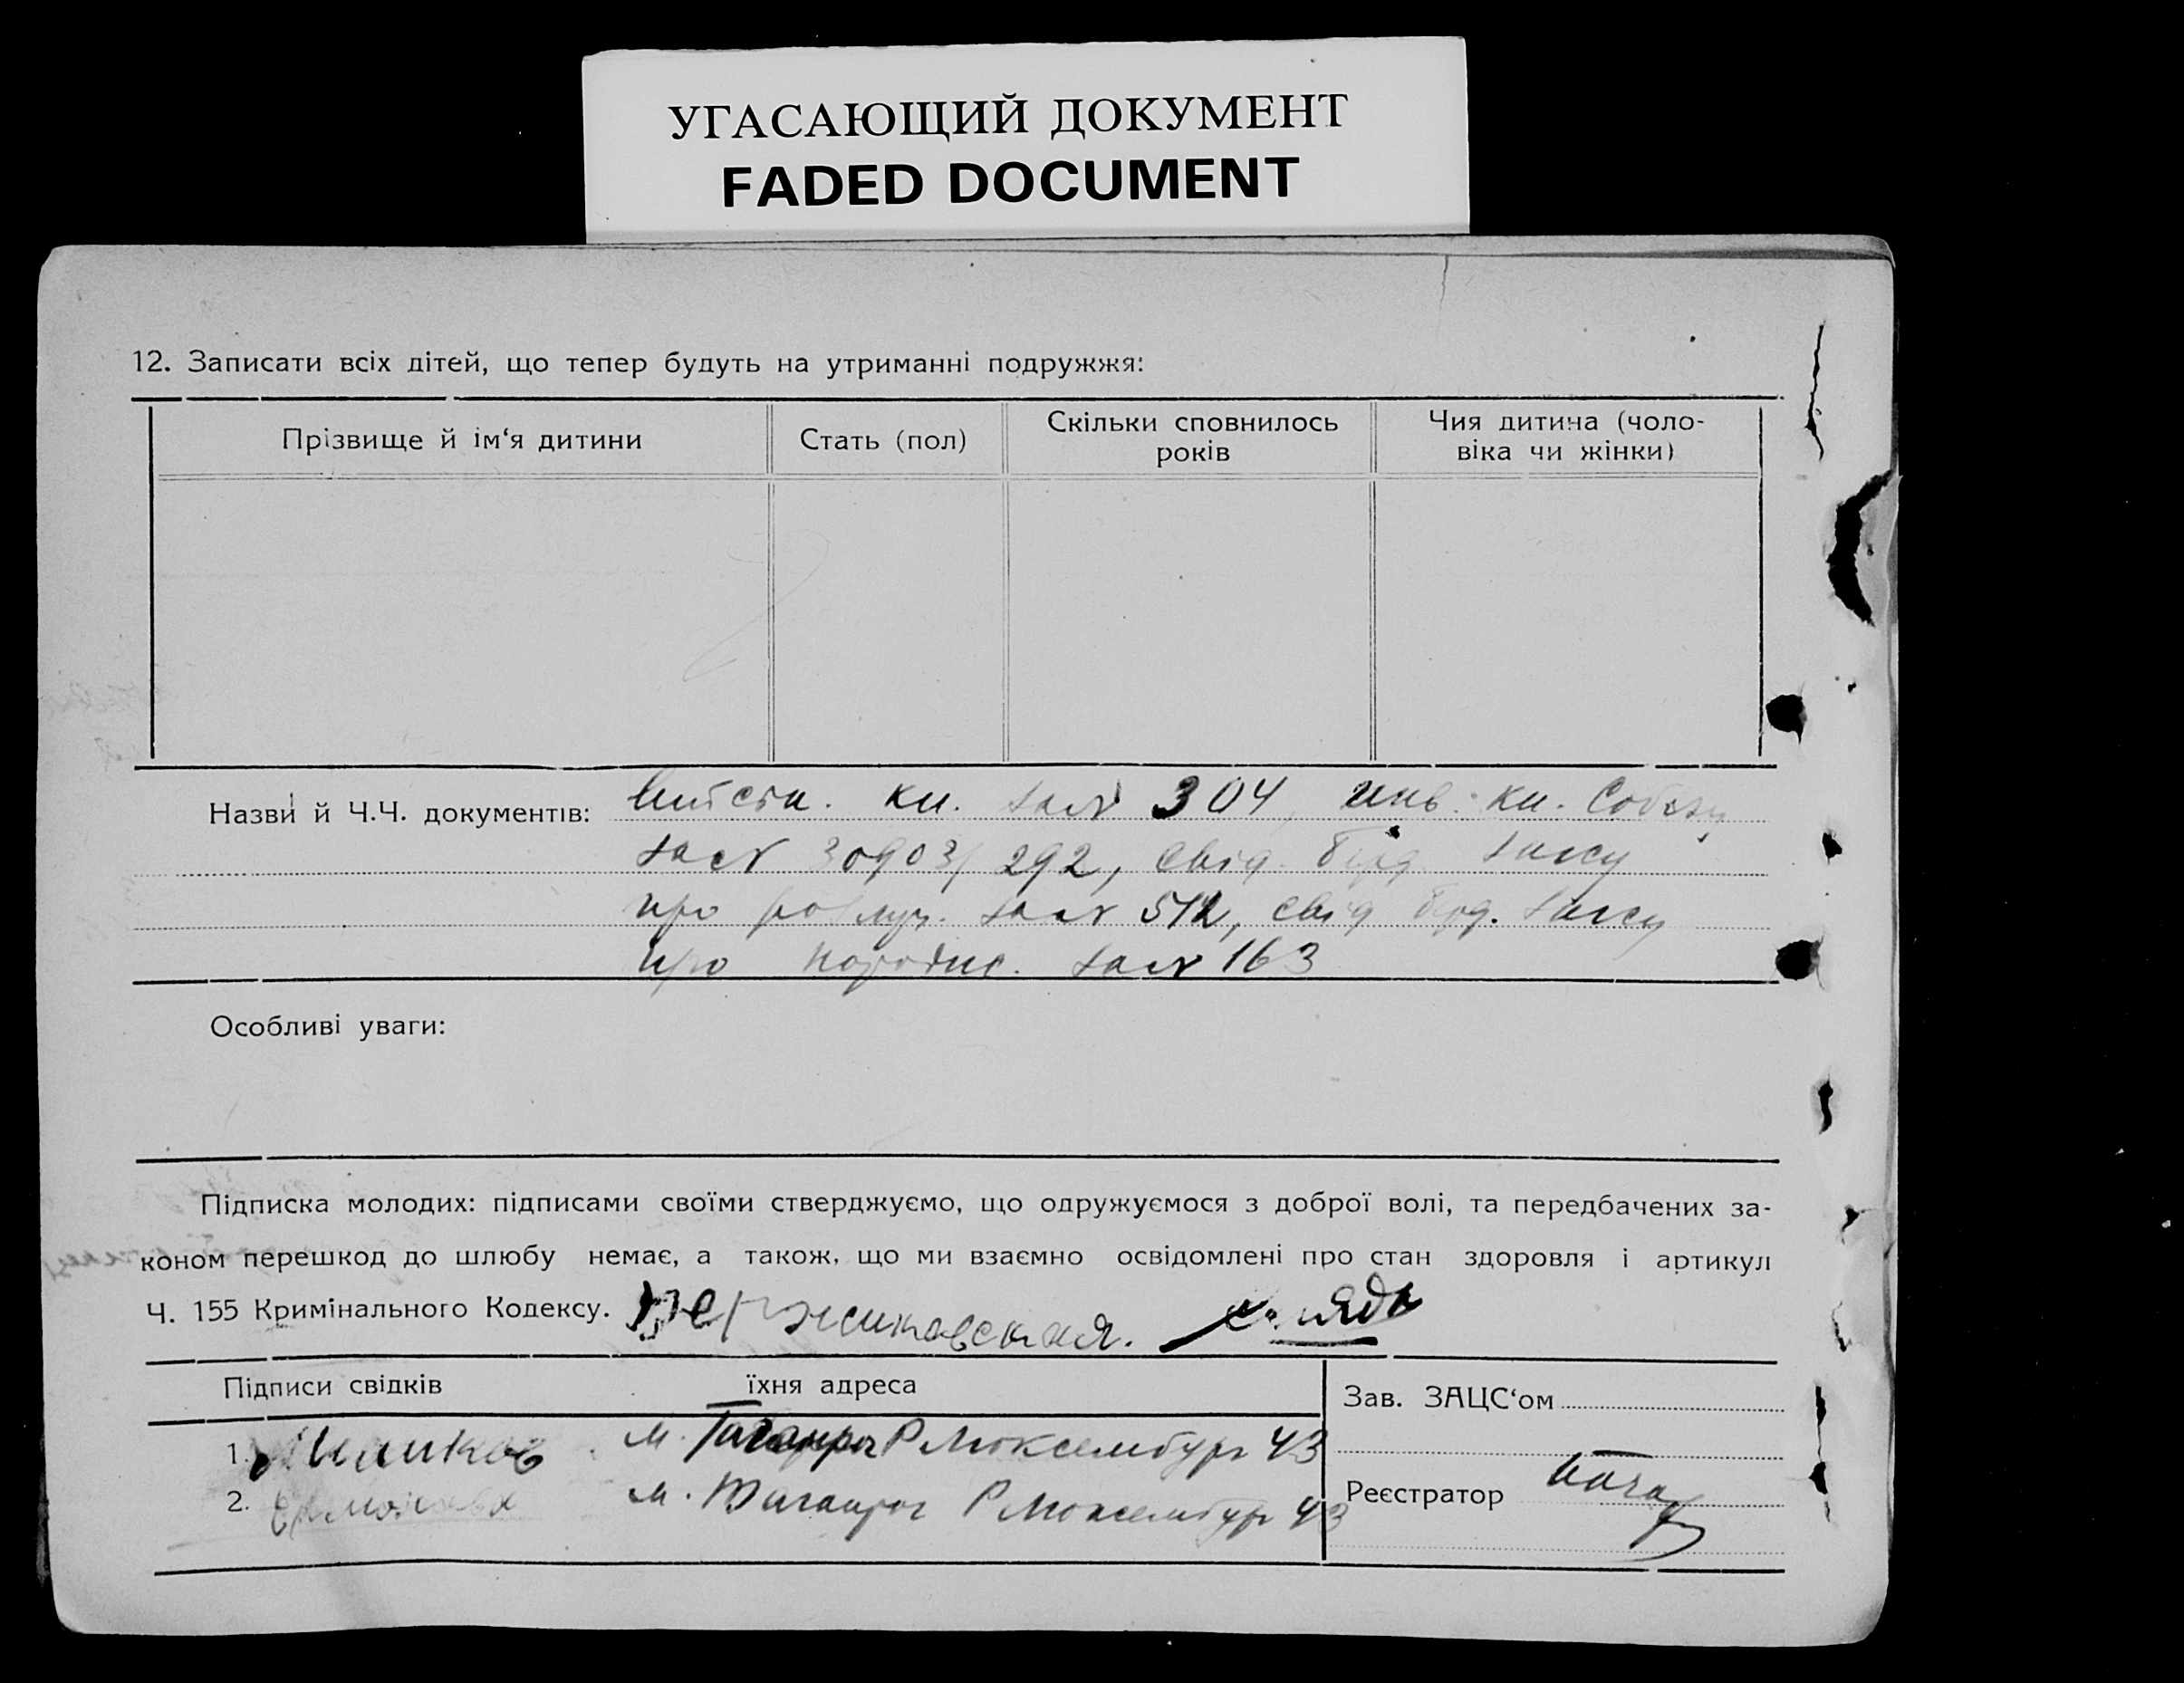 УГАСАЮЩИЙ ДОКУМЕНТ
FADED DOCUMENT
12. Записати всіх дітей, що тепер будуть на утриманні подружжя:
Прізвище й ім‘я дитини
Стать (пол)
Скільки сповнилось
років
Чия дитина (чоло-
віка чи жінки)
Назви й Ч.Ч. документів:
кн. за № 304, инв. кн. Собезу
за № 30903/292, свід. загсу
про розлуч. за № 512, свід. загсу
про за № 163
Особливі уваги:
Підписка молодих: підписами своїми стверджуємо, що одружуємося з доброї волі, та передбачених за-
коном перешкод до шлюбу немає, а також, що ми взаємно освідомлені про стан здоровля і артикул
Ч. 155 Кримінального Кодексу.
Підписи свідків
їхня адреса
Зав. ЗАЦС‘ом
1. м. Таганрог Р Люксембург 43
2. м. Таганрог Р Люксембург 43
Реєстратор